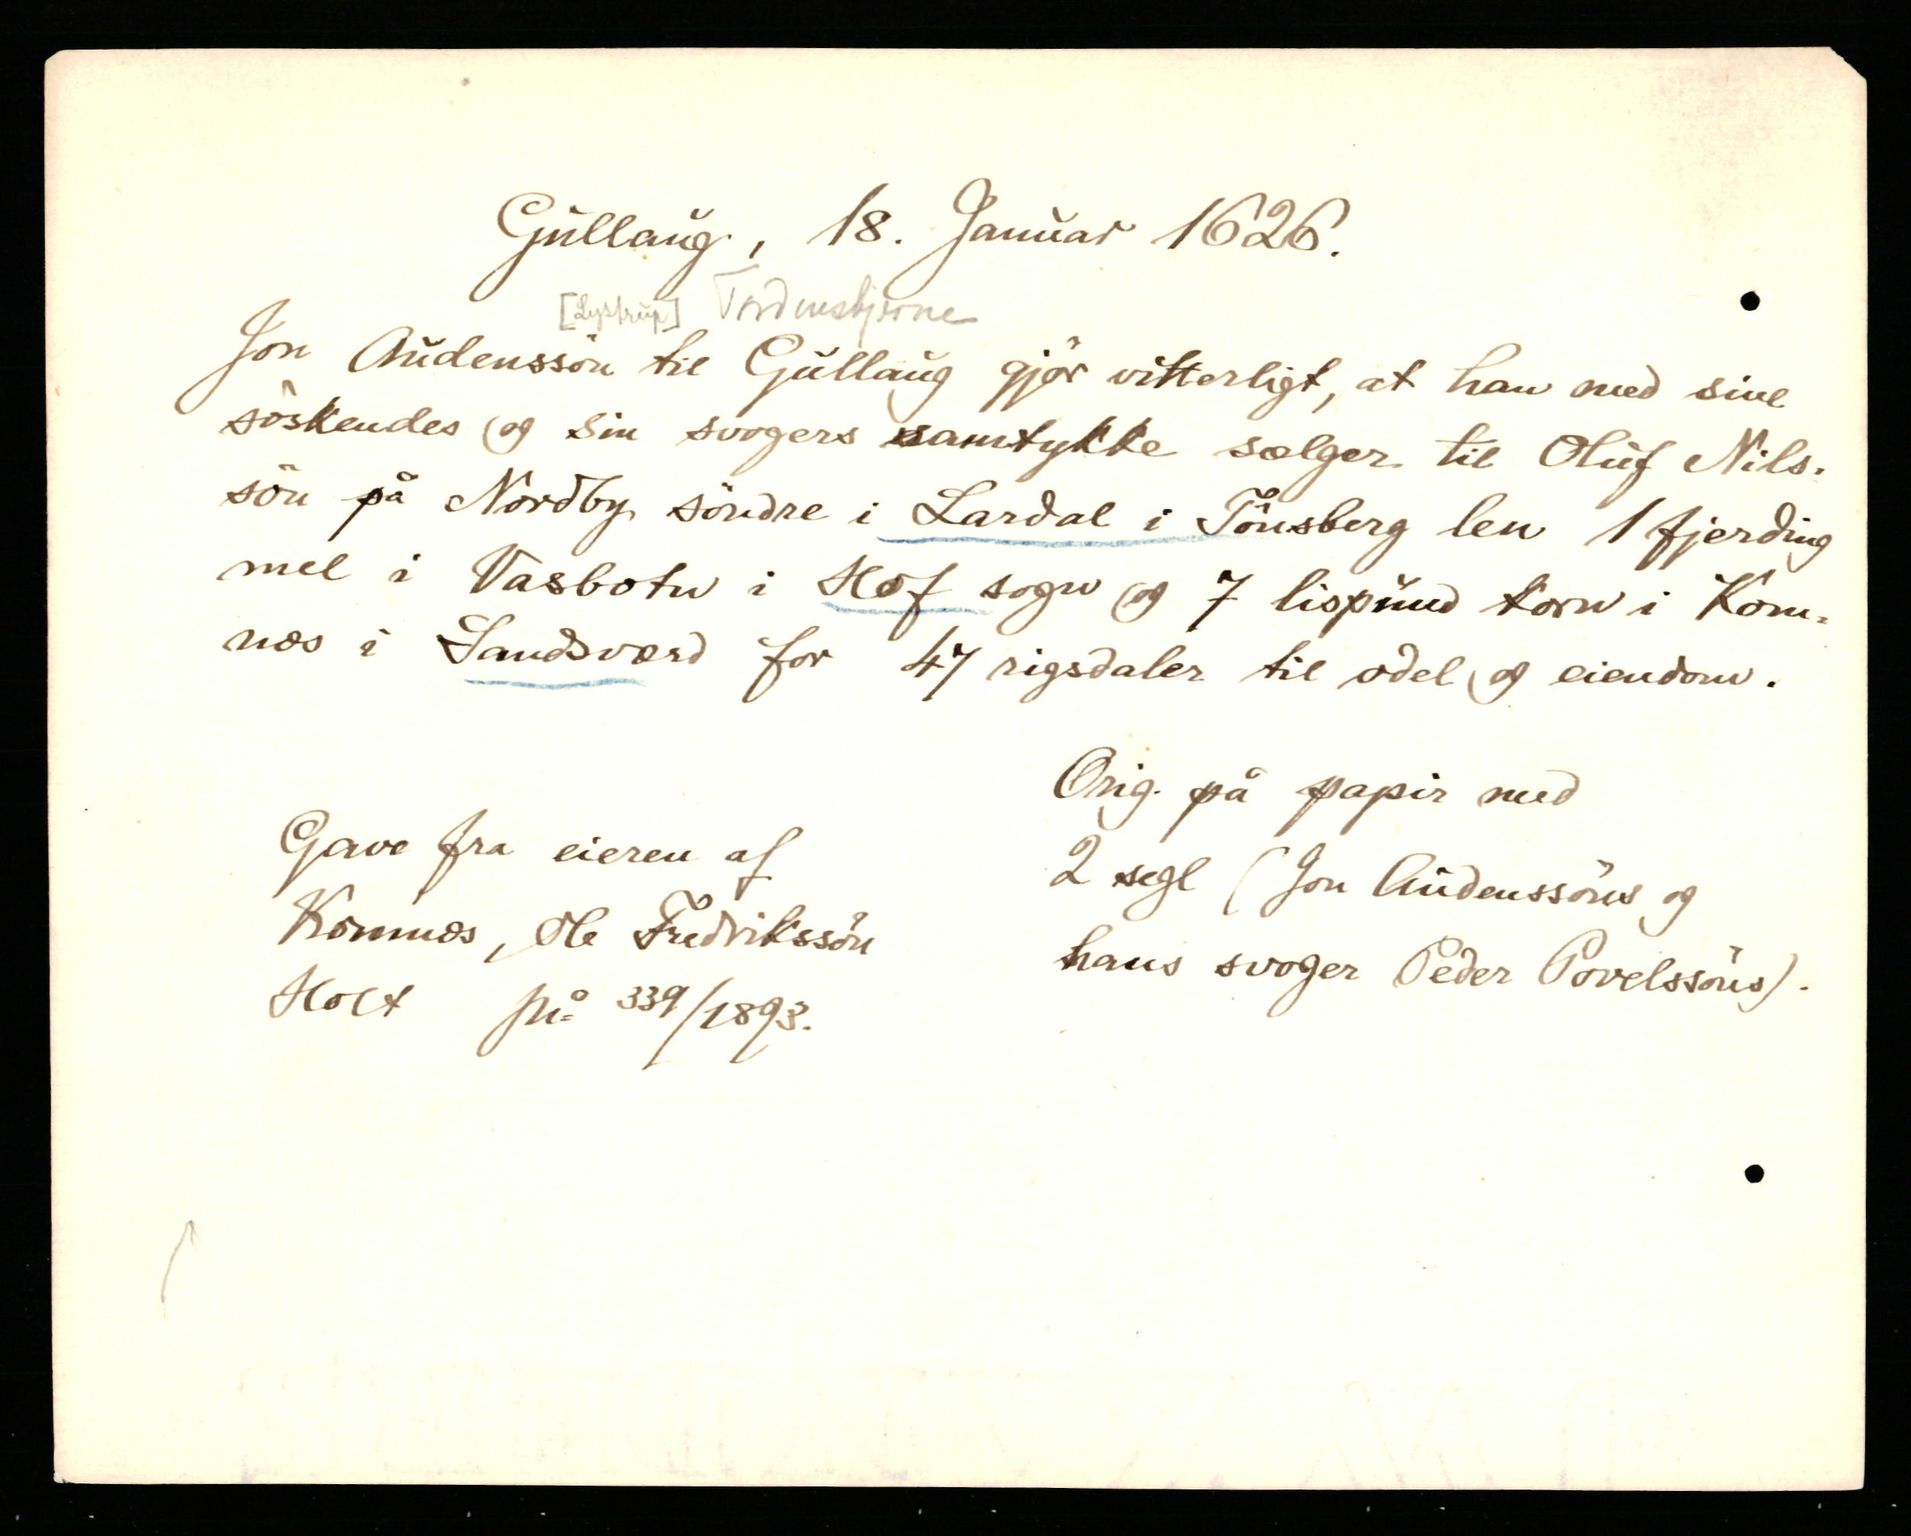 Gullaug, 18. Januar 1626.
[Lystrup] Tordenskjerne
Jon Audenssön til Gullaug gjör vitterligt, at han med sine
söskendes og sin svogers samtykke sælger til Oluf Nils-
sön på Nordby söndre i Lardal i Tönsberg len 1 fjerding
mel i Vasbotn i Hof sogn og 7 lispund korn i Kom-
næs i Sandsværd for 47 rigsdaler til odel og eiendom.
Orig. på papir med
2 segl (Jon Audenssöns og
hans svoger Peder Povelssöns).
Gave fra eieren af
Komnæs, Ole Fredrikssön
Holt 339/1893.